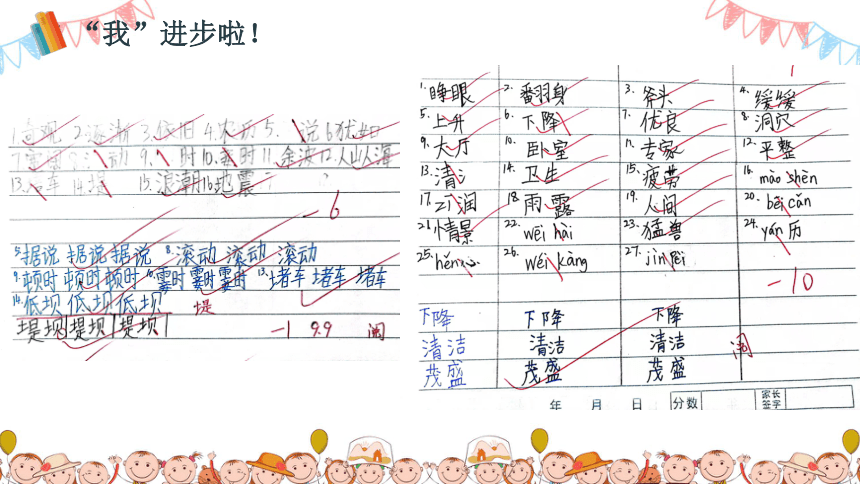 “我”进步啦！
1.奇观 2.逐渐 3.依旧 4.农历 5. 说 6.犹如
8. 动 9. 时 10. 时 11.余波 12.人山人海
13. 车 14.堤 15.浪潮 16.地震
-6
5.据说 据说 据说 8.滚动 滚动 滚动
9.顿时 顿时 顿时 10.霎时 霎时 霎时 13.堵车 堵车 堵车
14.低坝 低坝 低坝 堤
堤坝 堤坝 堤坝 -1 9.9 阅
1
1.睡眼 2.翻身 3.斧头 4.缓缓
5.上升 6.下降 7.优良 8.洞穴
9.大厅 10.卧室 11.专家 12.平整
13.清 14.卫生 15.疲劳 16.mào shèn
17. 润 18.雨露 19.人间 20.bēi cǎn
21.情景 22.wēi hài 23.猛兽 24.yán 历
25.hěn心 26.wéi kàng 27.jìn fēi
-10
下降 下降 下降
清洁 清洁 清洁 阅
茂盛 茂盛 茂盛
年 月 日 分数 家长签字